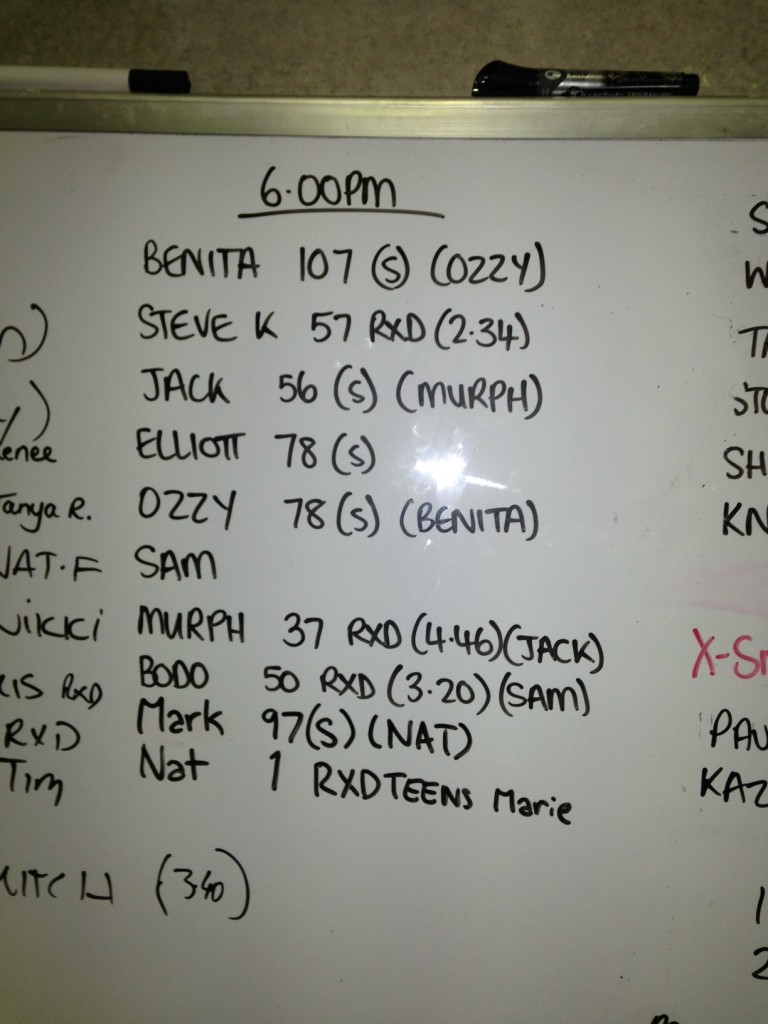 6.00PM
BENITA 107 (S) (OZZY)
STEVE K 57 RXD (2.34)
JACK 56 (S) (MURPH)
ELLIOTT 78 (S)
OZZY 78 (S) (BENITA)
SAM
MURPH 37 RXD (4.46) (JACK)
BODO 50 RXD (3.20) (SAM)
Mark 97(S) (NAT)
Nat 1 RXD TEENS Marie
enee
Tanya R.
NAT.F
NIKKI
RXD
RXD
Tim
(340)
S
W
TA
STO
SH
KN
X-Sm
PAU
KAZ
1
2